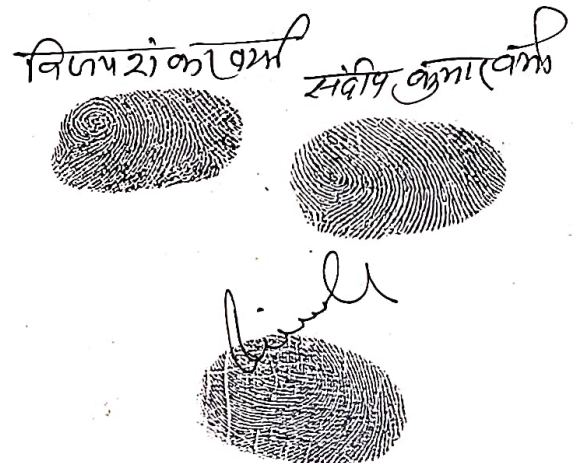 विजय शंकर वर्मा
संदीप कुमार वर्मा